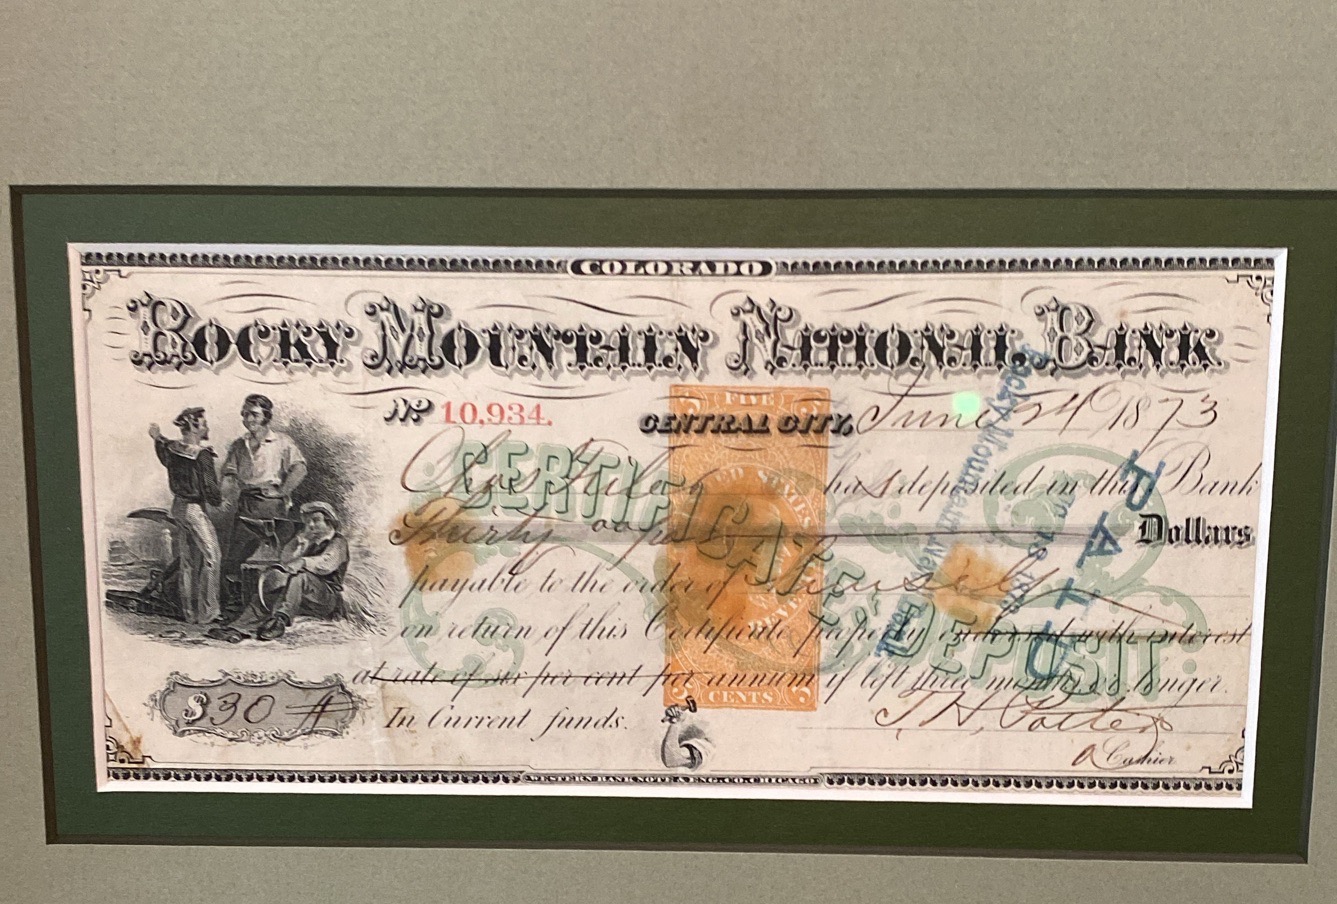 COLORADO
ROCKY MOUNTAIN NATIONAL BANK
No 10,934. CENTRAL CITY, June 24 1873
Chas has deposited in this Bank
Thirty 00/100 Dollars
payable to the order of
on return of this Certificate properly endorsed with interest
at rate of six per cent per annum if left three months or longer.
$30 In Current funds.
T. H. Potter
a Cashier
CERTIFICATE OF DEPOSIT
FIVE
UNITED STATES
CENTS
5 5
Rocky Mountain National
PAID
WESTERN BANK NOTE & ENG. CO. CHICAGO